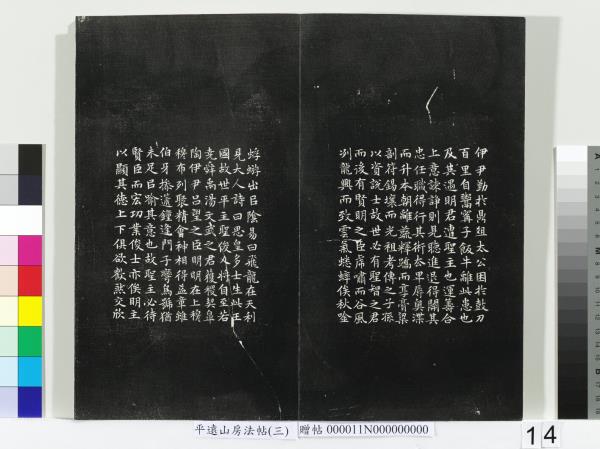 伊尹勤於鼎俎太公困於鼓刀
百里自鬻甯子飯牛離此患也
及其遇明君遭聖主也運籌合
上意諫諍則見聽進退得關其
忠任職得行其術去卑辱奧渫
而升本朝離蔬釋蹻而享膏粱
剖符錫壤而光祖考傳之子孫
以資說士故世必有聖智之君
而後有賢明之臣虎嘯而谷風
冽龍興而致雲氣蟋蟀俟秋唫
蜉蝣出㠯陰易曰飛龍在天利
見大人詩曰思皇多士生此王
國故世平主聖俊乂將自至若
堯舜禹湯文武之君獲稷契皐
陶伊尹呂望之臣明明在上穆
穆布列聚精會神相得益章雖
伯牙操遞鍾逢門子彎烏號猶
未足㠯喻其意也故聖主必待
賢臣而宏功業俊士亦俟明主
以顯其德上下俱欲歡然交欣
平遠山房法帖(三) 贈帖 000011N000000000
14